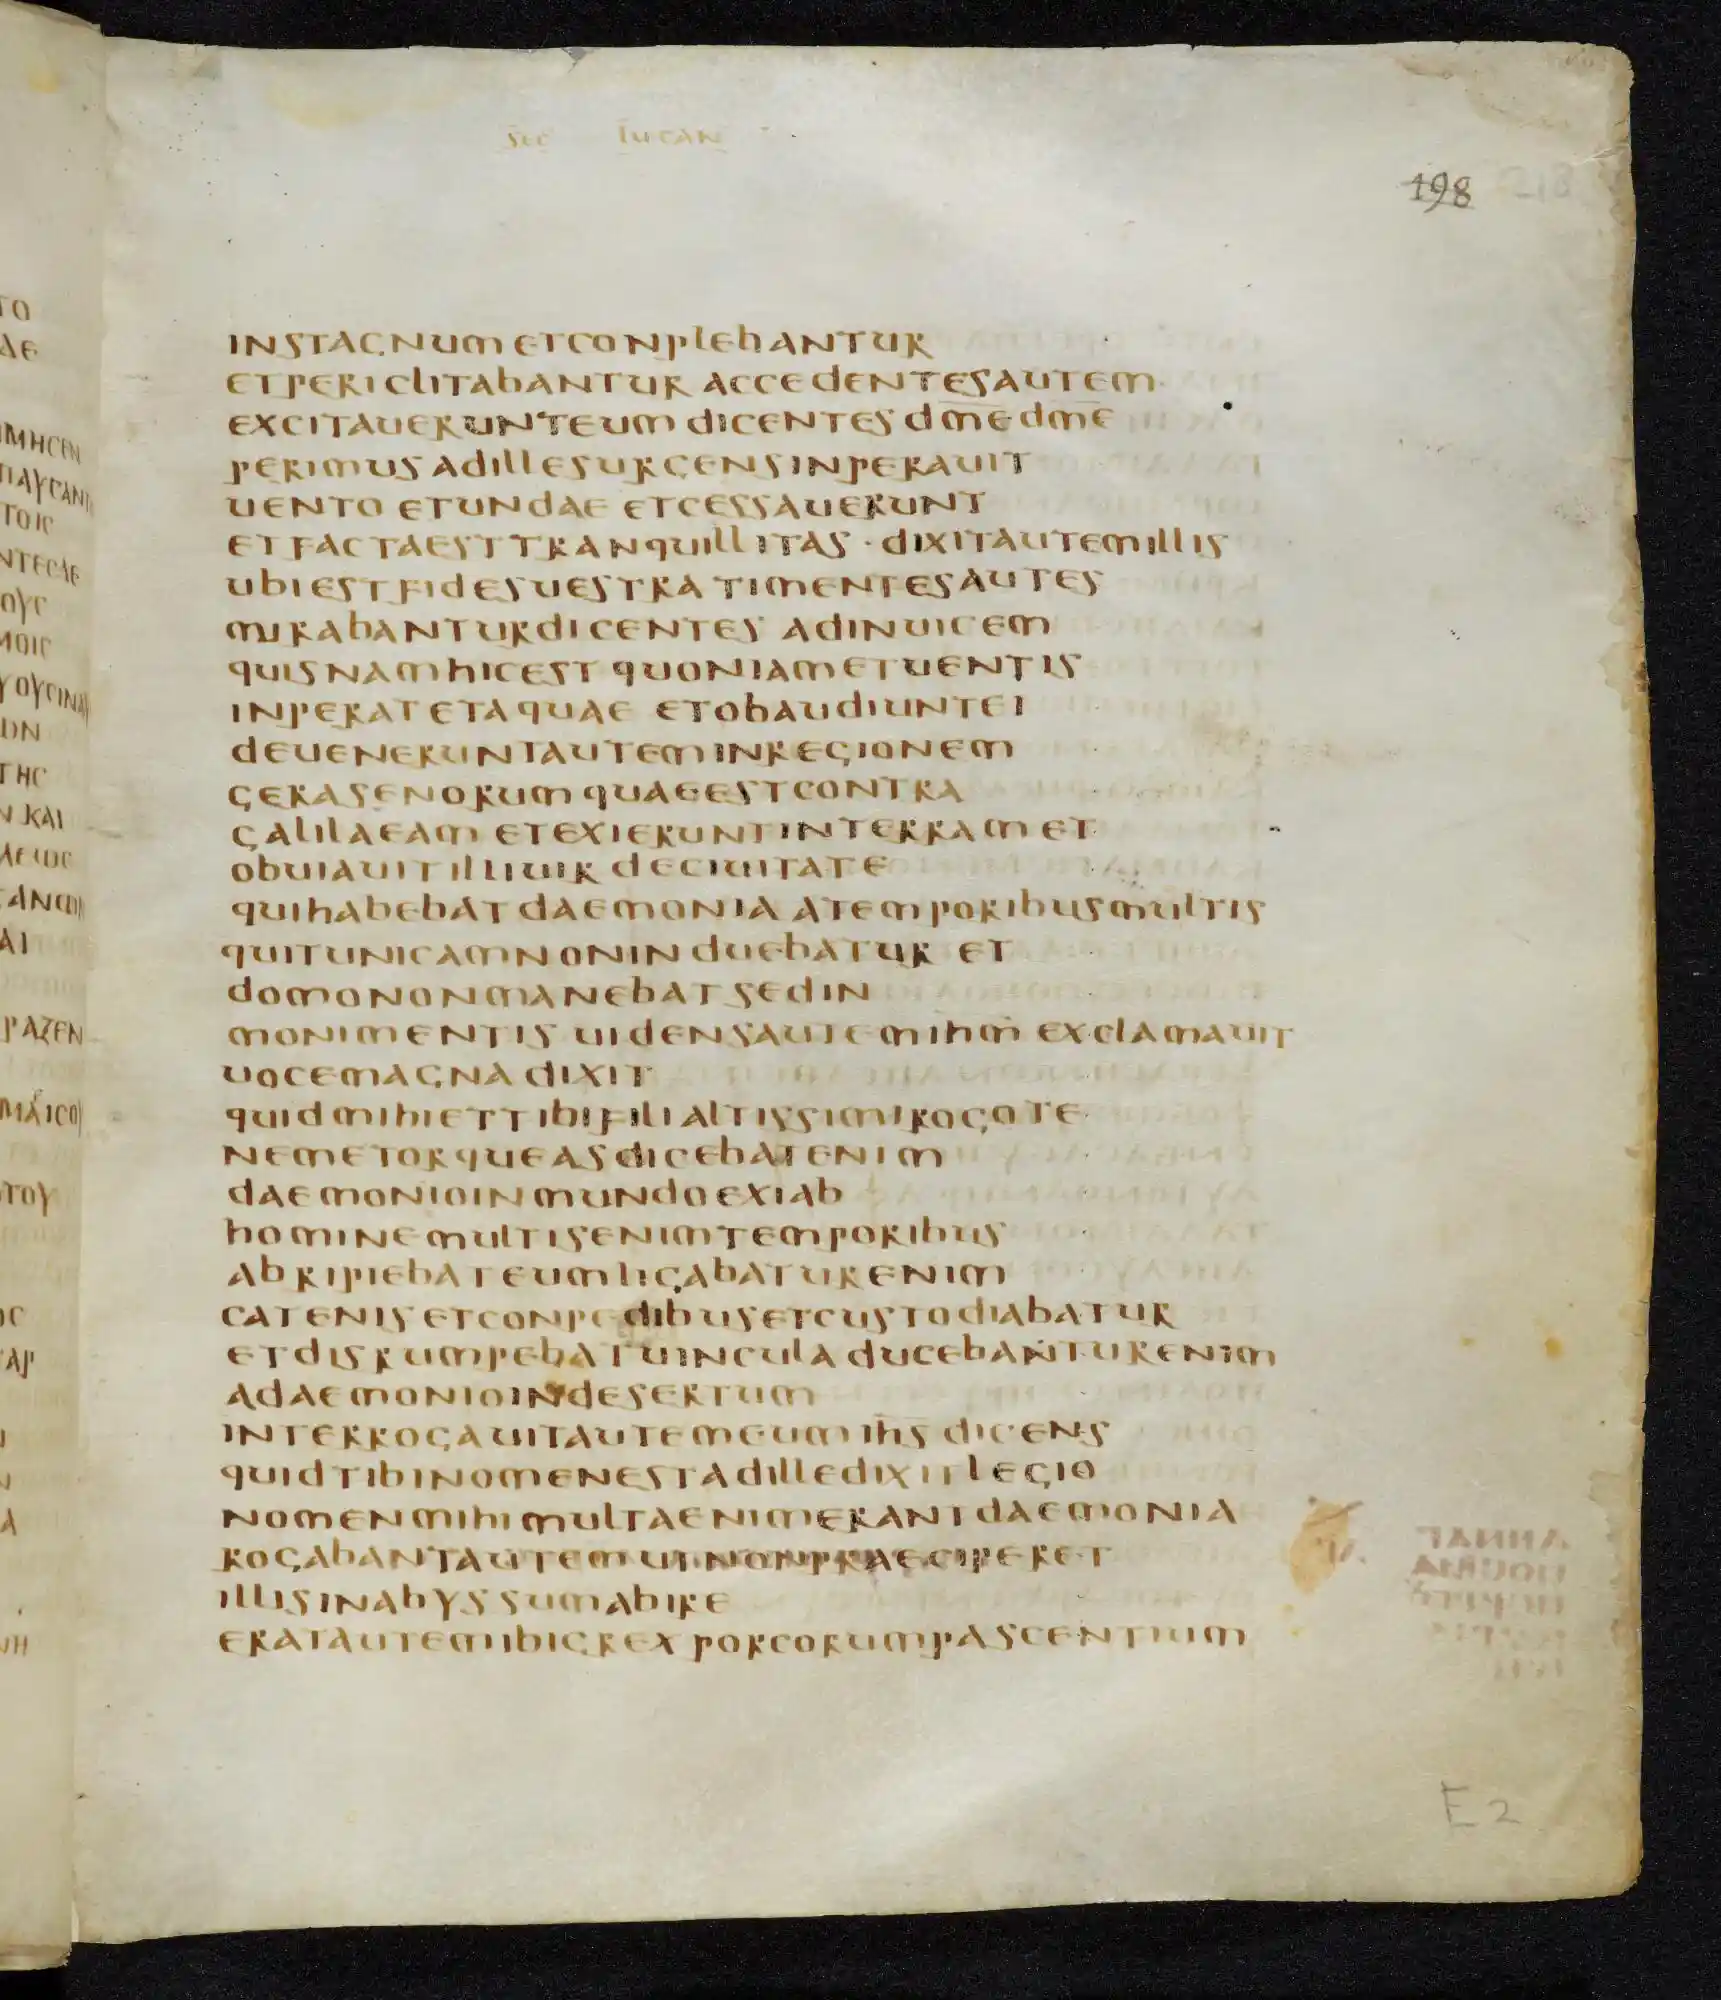 sec lucan
198
INSTAGNUM ETCONPLEBANTUR
ETPERICLITABANTUR ACCEDENTESAUTEM
EXCITAUERUNTEUM DICENTES DM̅E DM̅E
PERIMUS ADILLESURGENSINPERAUIT
UENTO ETUNDAE ETCESSAUERUNT
ETFACTAESTTRANQUILLITAS · DIXITAUTEMILLIS
UBIESTFIDESUESTRA TIMENTESAUTES
MIRABANTURDICENTES ADINUICEM
QUISNAMHICEST QUONIAMETUENTIS
INPERATETAQUAE ETOBAUDIUNTEI
DEUENERUNTAUTEMINREGIONEM
GERASENORUMQUAEESTCONTRA
GALILAEAM ETEXIERUNTINTERRAMET
OBUIAUITILLIUIR DECIUITATE
QUIHABEBAT DAEMONIA ATEMPORIBUSMULTIS
QUITUNICAMNONINDUEBATUR ET
DOMONONMANEBAT SEDIN
MONIMENTIS UIDENSAUTEMIHM̅ EXCLAMAUIT
UOCEMAGNA DIXIT
QUIDMIHIETTIBIFILIALTISSIMIROGOTE
NEMETORQUEASDICEBATENIM
DAEMONIOINMUNDOEXIAB
HOMINEMULTISENIMTEMPORIBUS
ABRIPIEBATEUMLIGABATURENIM
CATENISETCONPEDIBUSETCUSTODIABATUR
ETDISRUMPEBATUINCULA DUCEBANTURENIM
ADAEMONIOINDESERTUM
INTERROGAUITAUTEMEUMIH̅S̅ DICENS
QUIDTIBINOMENESTADILLEDIXITLEGIO
NOMENMIHIMULTAENIMERANTDAEMONIA
ROGABANTAUTEMUTNONPRAECIPERET
ILLISINABYSSUMABIRE
ERATAUTEMIBIGREX PORCORUMPASCENTIUM
E2